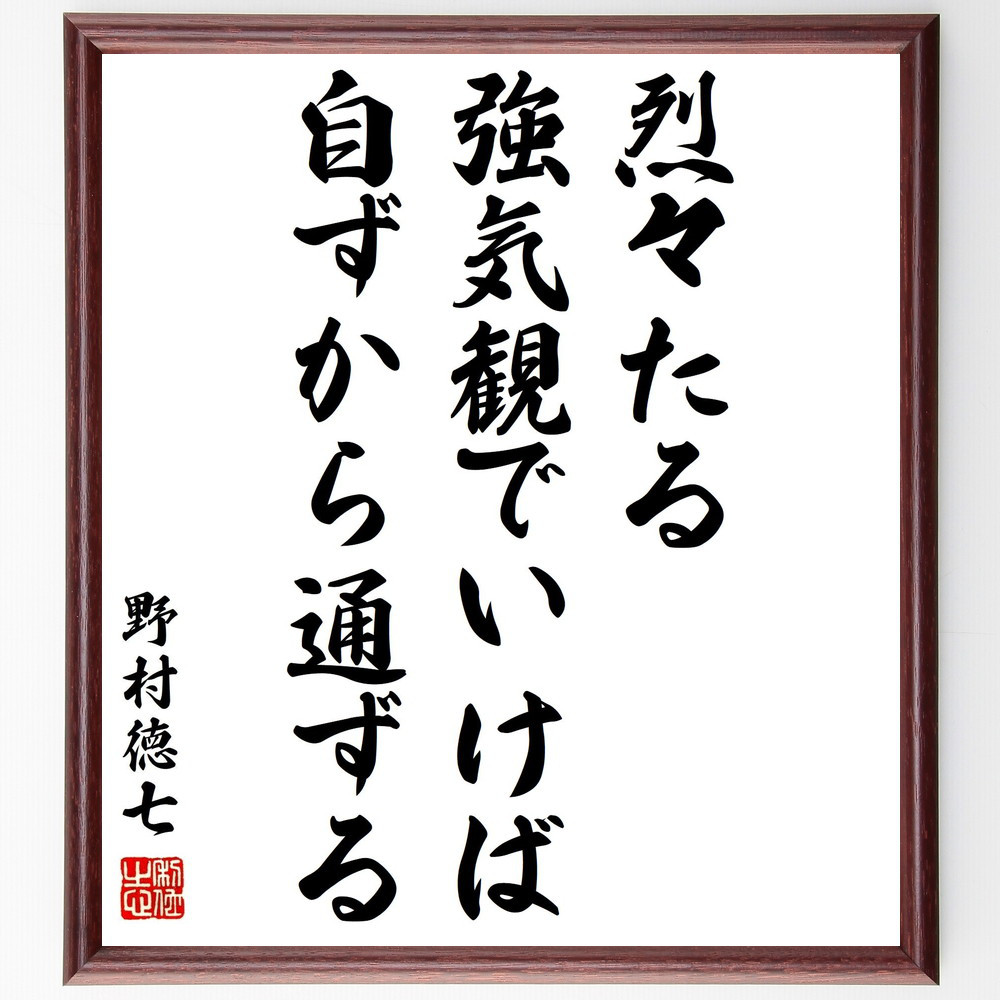 烈々たる
強気観でいけば
自ずから通ずる
野村徳七